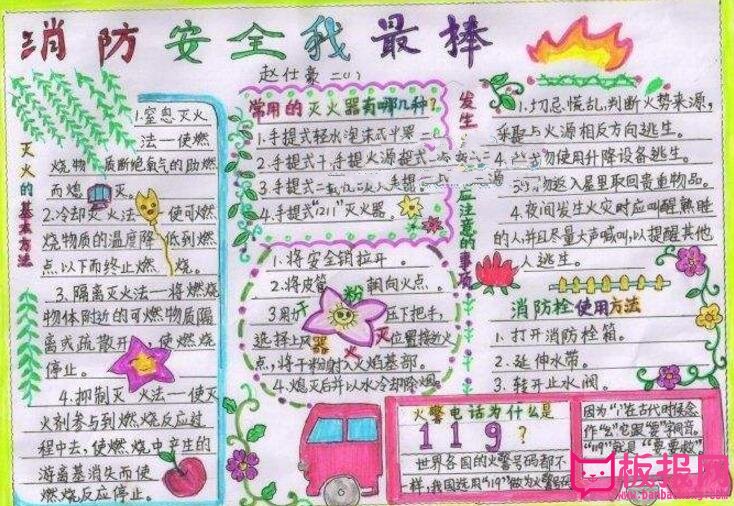 消防安全我最棒
赵仕豪 二(1)
灭火的基本方法
1.窒息灭火
法——使燃
烧物质断绝氧气的助燃
而熄灭。
2.冷却灭火法——使可燃
烧物质的温度降低到燃
点以下而终止燃烧。
3.隔离灭火法——将燃烧
物体附近的可燃物质隔
离或疏散开,使燃烧
停止。
4.抑制灭火法——使灭
火剂参与到燃烧反应过
程中去,使燃烧中产生的
游离基消失而使
燃烧反应停止。
常用的灭火器有哪几种?
1.手提式轻水泡沫灭火器
2.手提式干
3.手提式二
4.手提式"1211"灭火器。
干粉灭火器
1.将安全销拉开。
2.将皮管朝向火点。
3.用力压下把手,
选择上风位置接近火
点,将干粉射入火焰基部。
4.熄灭后并以水冷却除烟。
发生
应注意的事项
1.切忌慌乱,判断火势来源,
采取与火源相反方向逃生。
使用升降设备逃生。
返入屋里取回贵重物品。
4.夜间发生火灾时应叫醒熟睡
的人并且尽量大声喊叫,以提醒其他
人逃生。
消防栓使用方法
1.打开消防栓箱。
2.延伸水带。
3.转开止水阀。
火警电话为什么是
119?
世界各国的火警号码都不
一样,我国选用"119"做为火警号码
因为"1"在古代时候念
作"幺",它跟"要"字同音。
"119"就是"要要救"
板报网
www.banbaowang.com